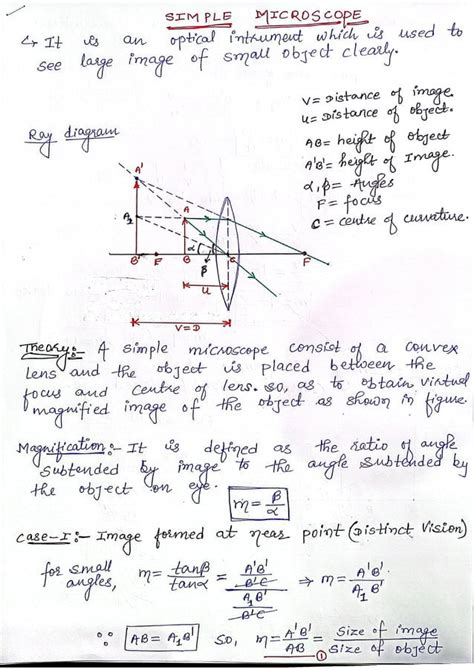 SIMPLE MICROSCOPE
↳ It is an optical intrument which is used to
see large image of small object clearly.
V = Distance of image.
u = Distance of object.
AB = height of object
A'B' = height of Image.
α, β = Angles
F = focus
C = centre of curvature.
Ray diagram
A'
A₁
A
α
B'
F
B
β
C
F
u
V = D
Theory:- A simple microscope consist of a convex
lens and the object is placed between the
focus and centre of lens. so, as to obtain virtual
magnified image of the object as shown in figure.
Magnification:- It is defined as the ratio of angle
subtended by image to the angle subtended by
the object on eye.
m = β/α
Case-I:- Image formed at near point (Distinct Vision)
for small angles, m = tanβ/tanα = (A'B'/B'C)/(A₁B'/B'C) ⇒ m = A'B'/A₁B'
∵ AB = A₁B' so, m = A'B'/AB ① = Size of image/Size of object